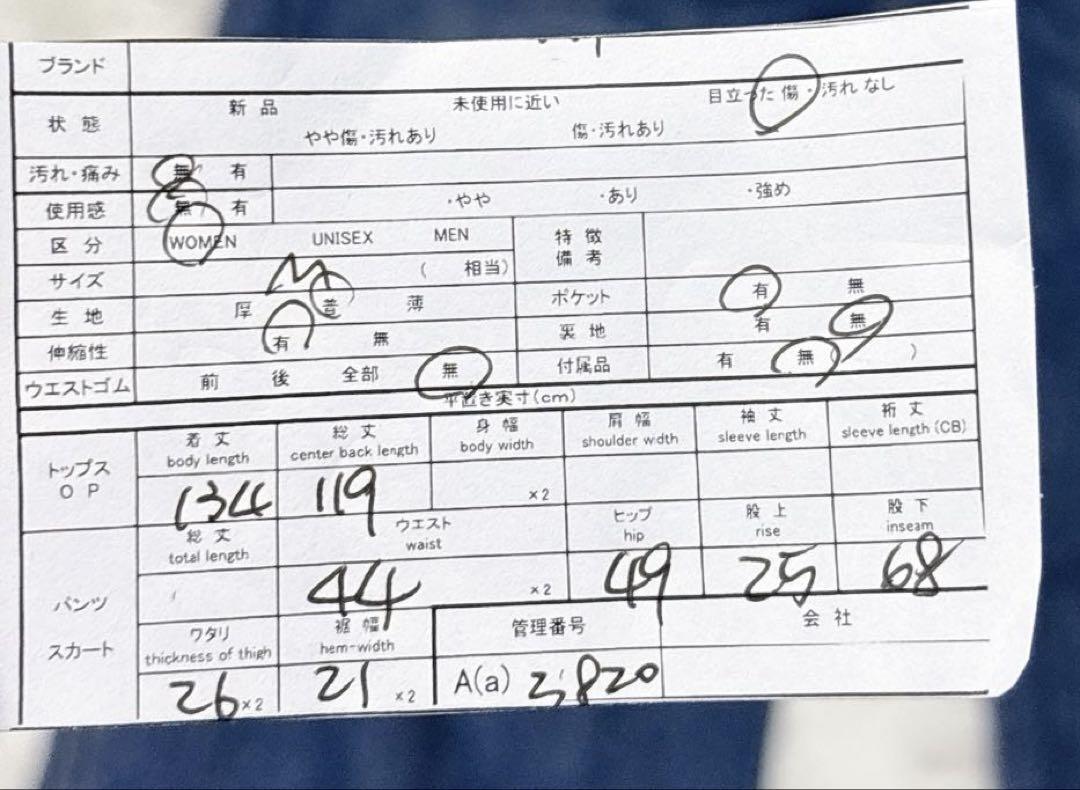 ブランド
状態 新品 未使用に近い 目立った傷・汚れなし
やや傷・汚れあり 傷・汚れあり
汚れ・痛み 無 有
使用感 無 有 ・やや ・あり ・強め
区分 WOMEN UNISEX MEN 特徴
備考
サイズ M ( 相当)
生地 厚 普 薄 ポケット 有 無
伸縮性 有 無 裏地 有 無
ウエストゴム 前 後 全部 無 付属品 有 無 ( )
平置き実寸(cm)
トップス
OP
着丈 総丈 身幅 肩幅 袖丈 裄丈
body length center back length body width shoulder width sleeve length sleeve length (CB)
134 119 ×2
総丈 ウエスト ヒップ 股上 股下
total length waist hip rise inseam
パンツ 44 ×2 49 25 68
スカート
ワタリ 裾幅 管理番号 会社
thickness of thigh hem-width
26 ×2 21 ×2 A(a) 3,820